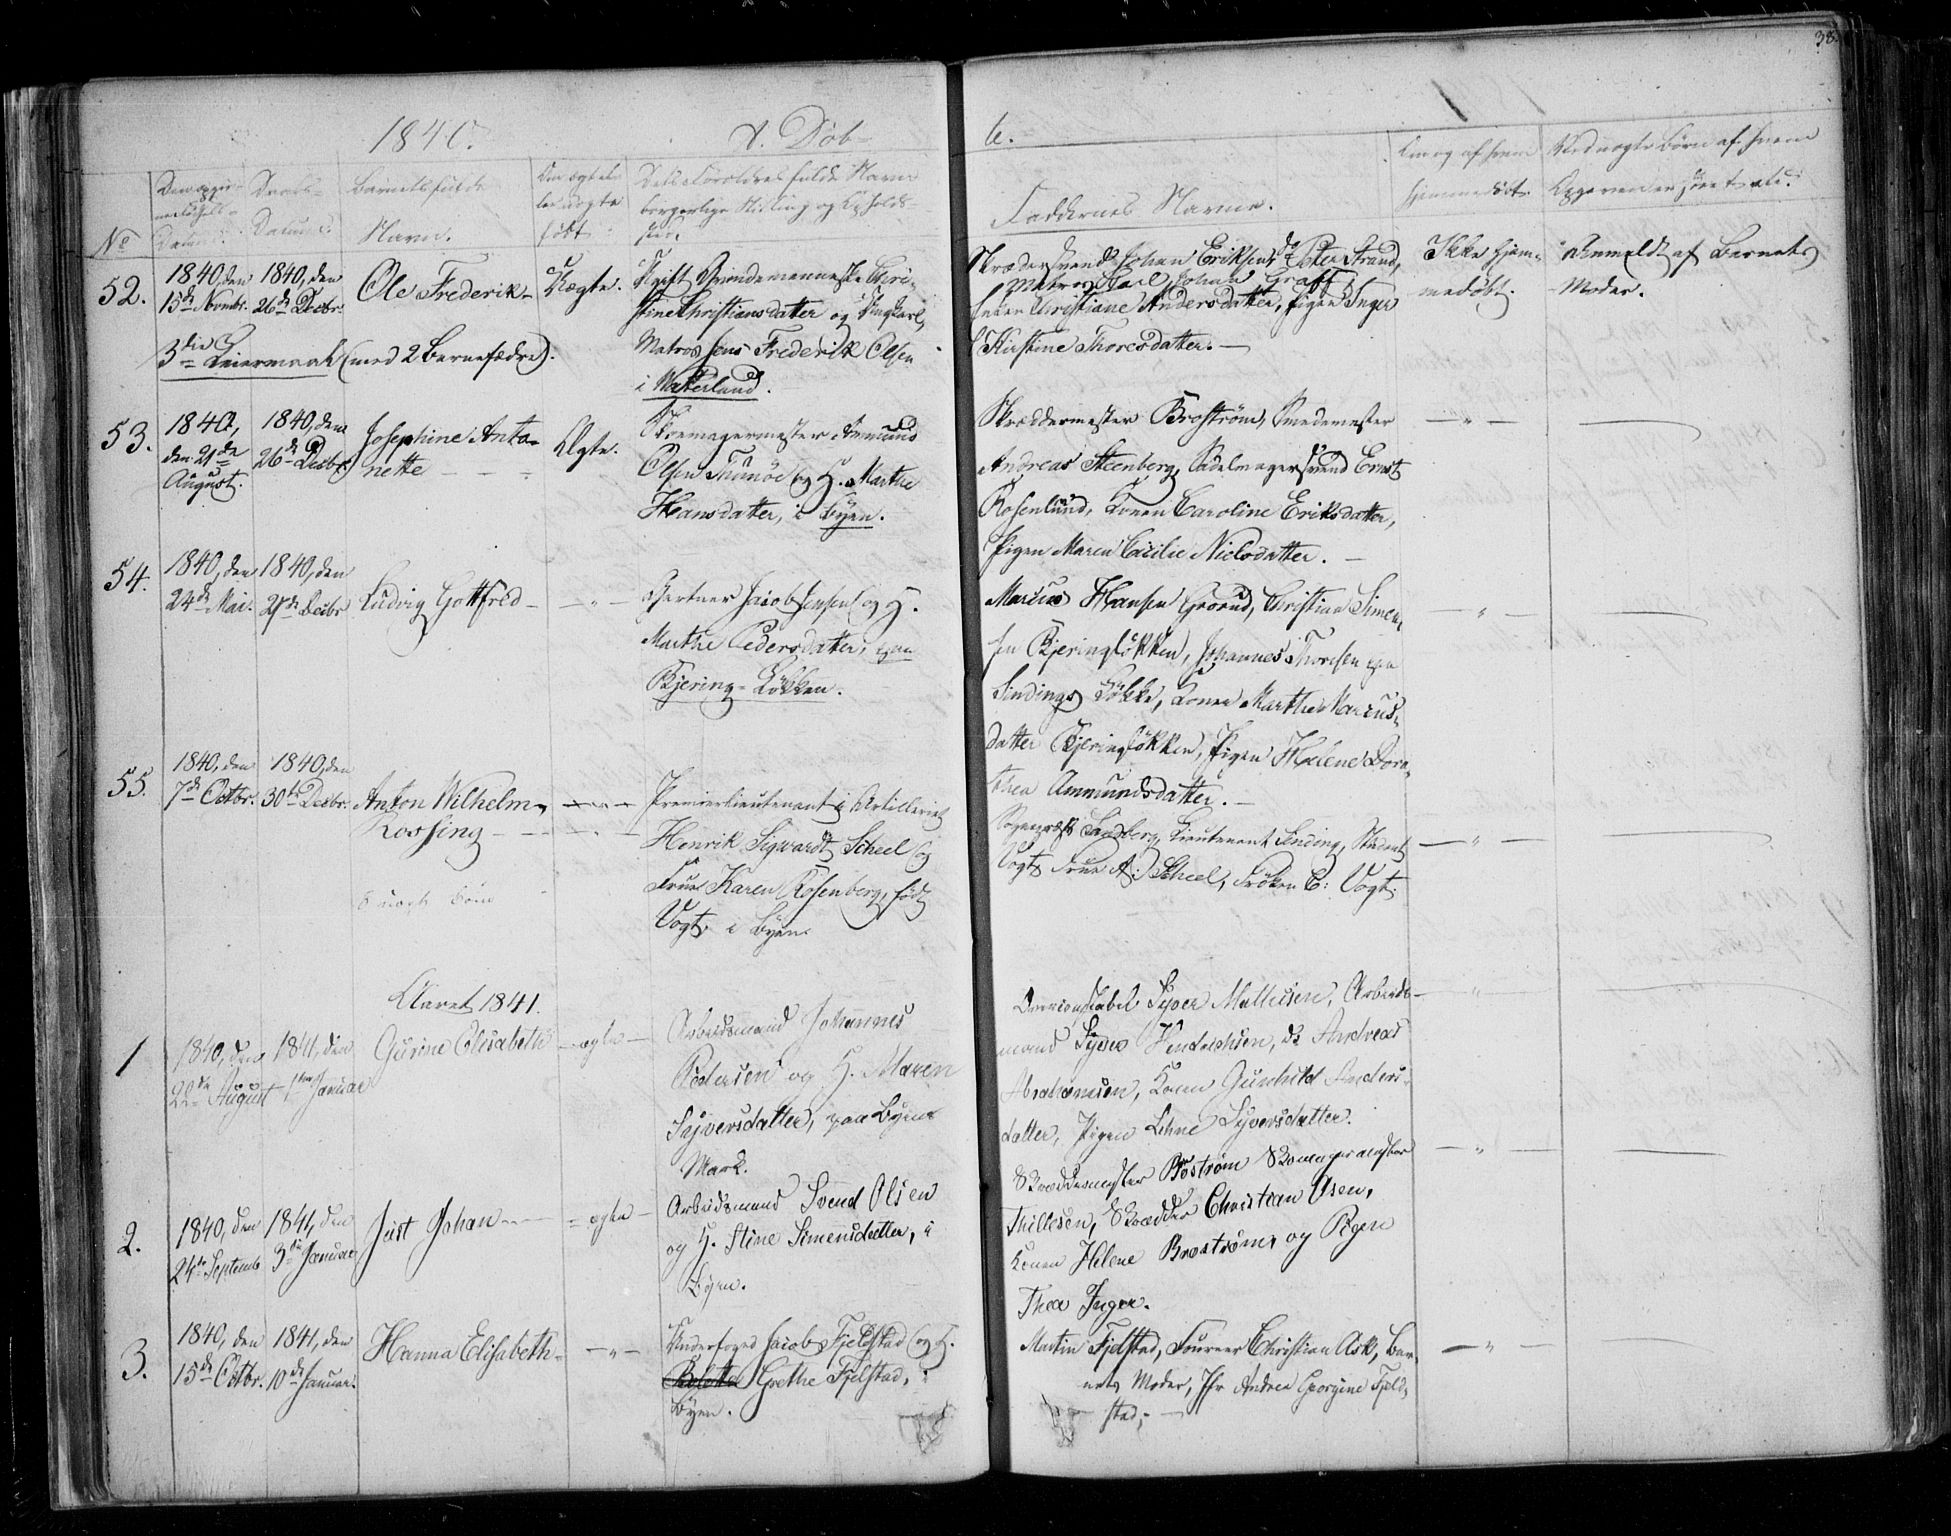 38.
1840. A. Døb-
te.
No
Barnets fulde
Navn.
Faddernes Navne.
52.
1840, den
15de Novembr.
1840, den
26de Decbr.
Ole Frederik-
Uægte.
Pigen Christiansdatter og Ungkarl,
Matros Jens Frederik Olsen
i Vaterland.
3die Leiermaal (med 2 Barnefædre).
Skrædersvend Johan Eriksen, do Peter Strand,
Matros Carl Johan Graff,
Enken Christiane Andersdatter, Pigen Inger
Kirstine Thoresdatter.-
Ikke hjem-
medøbt.
Anmeldt af Barnets
Moder.
53.
1840,
den 21de
August.
1840, den
26de Decbr.
Josephine Anto-
nette
Ægte.
Skomagermester Amund
Olsen og H. Marthe
Hansdatter, i Byen.
Skræddermester Broström, Smedemester
Andreas Steenberg, Sadelmagersvend Ernst
Rosenlund, Konen Caroline Eriksdatter,
Pigen Maren Cicilie Nielsdatter.-
54.
1840, den
24de Mai.
1840, den
27de Decbr
Ludvig Gottfred-
-"-
Gartner Jacob Jensen og H.
Marthe Pedersdatter, paa
Bjering-Løkken.
Marcus Hansen Grorud, Christian Simen-
sen Bjeringløkken, Johannes Thoresen paa
Sindings Løkke, Konen Marthe Marcus-
datter Bjeringløkken, Pigen Helene Doro-
thea Ammundsdatter.-
55.
1840, den
7de Octbr.
1840, den
30te Decbr.
Anton Wilhelm
Rossing-
-"-
Premierlieutenant i Artilleriet
Henrik Sigwardt Scheel og
Frue Karen Rosenberg, født
Vogt, i Byen.
Sogneprest Lieutenant Sinding, Student
Vogt, Frue A: Scheel, Frøken C: Vogt.
8 uægte Børn
Aaret 1841.
1
1840, den
22de August
1841, den
1ste Januar
Gurine Elisabeth
-ægte-
Arbeidsmand Johannes
Pedersen og H. Maren
Syversdatter, paa Byens
Mark.
Syver Mathisen, Arbeids-
mand Syver Hendrichsen, do Andreas
Abrahamsen, Konen Gunhild Anders-
datter, Pigen Lehne Syversdatter.
2.
1840, den
24de Septemb
1841, den
3die Januar
Just Johan
-ægte-
Arbeidsmand Svend Olsen
og H. Stine Simensdatter, i
Byen.
Skræddermester Boström Skomagermester
Thillesen, Skrædder Christian Olsen,
Konen Helene Broström, og Pigen
Thea Inger.
3.
1840, den
15de Octbr.
1841, den
10de Januar.
Hanna Elisabeth-
-"-
Underfoged Jacob Fjeldstad og H.
Grethe Fjelstad, i
Byen.
Martin Fjelstad, Foureer Christian Ask, Bar-
nets Moder, Jfr Andrea Georgine Fjeld-
stad,-